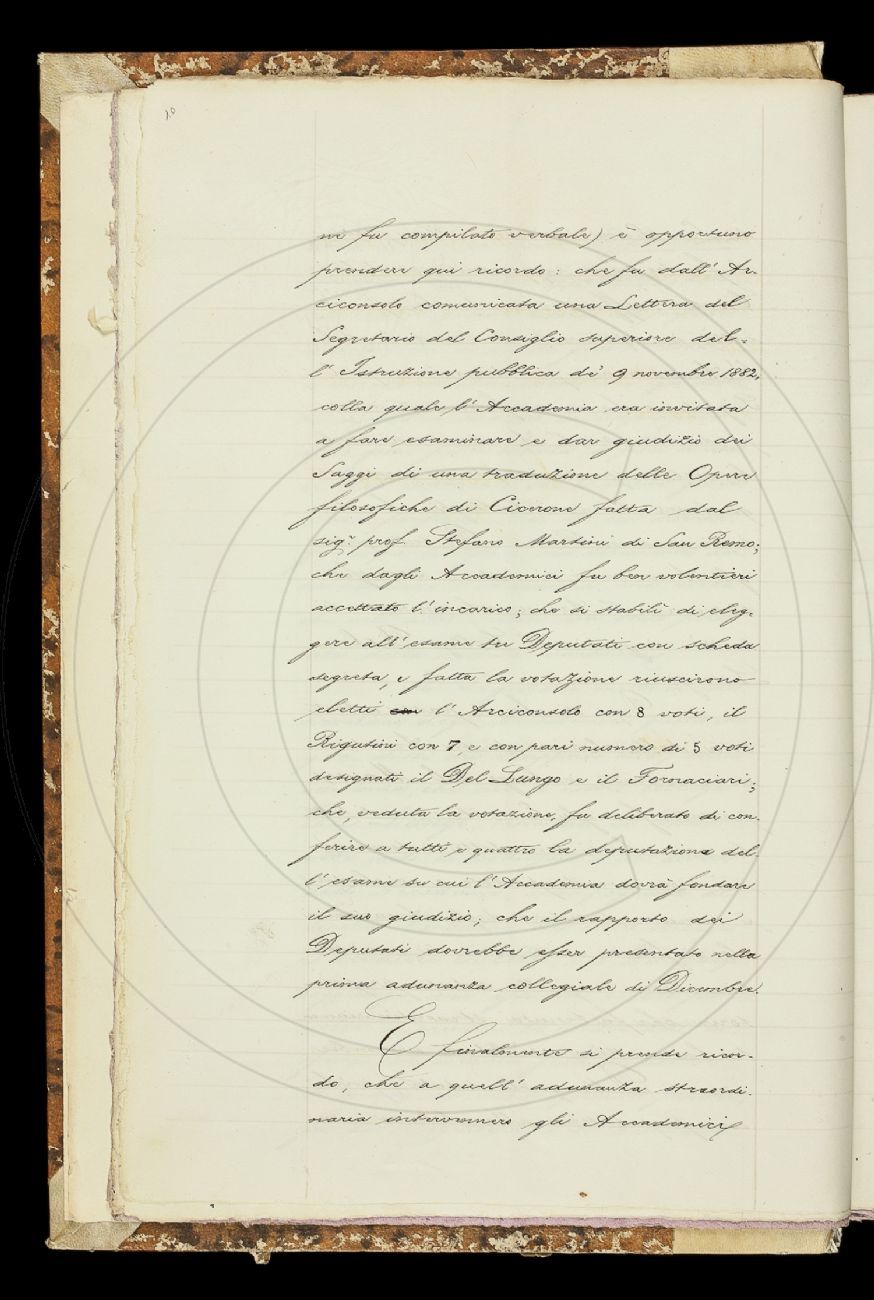 10
ne fu compilato verbale) è opportuno
prendere qui ricordo: che fu dall'Ar-
ciconsolo comunicata una Lettera del
Segretario del Consiglio superiore del-
l'Istruzione pubblica de' 9 novembre 1882,
colla quale l'Accademia era invitata
a fare esaminare e dar giudizio dei
Saggi di una traduzione delle Opere
filosofiche di Cicerone fatta dal
sig.r prof. Stefano Martini di San Remo;
che dagli Accademici fu ben volentieri
accettato l'incarico; che si stabilì di eleg-
gere all'esame tre Deputati con scheda
segreta, e fatta la votazione riuscirono
eletti con l'Arciconsolo con 8 voti, il
Rigutini con 7, e con pari numero di 5 voti
designati il Del Lungo e il Fornaciari;
che, veduta la votazione, fu deliberato di con-
ferire a tutti e quattro la deputazione del-
l'esame su cui l'Accademia dovrà fondare
il suo giudizio; che il rapporto dei
Deputati dovrebbe esser presentato nella
prima adunanza collegiale di Dicembre.
E finalmente si prende ricor-
do, che a quell'adunanza straordi-
naria intervennero gli Accademici